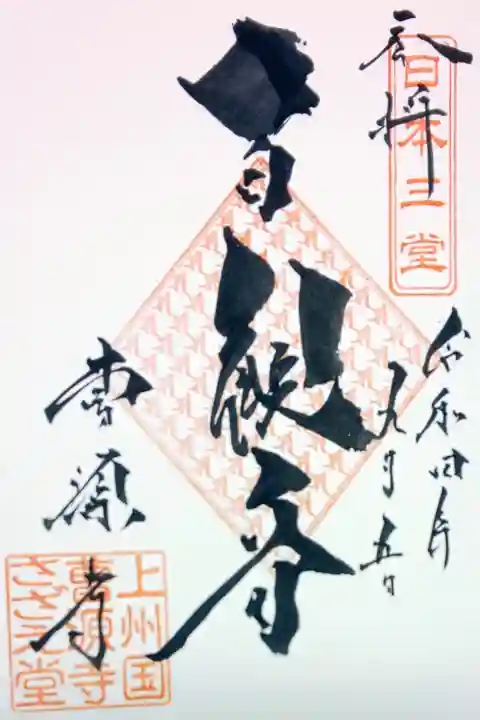 奉拝
日本三堂
令和四年
九月五日
百観音
曹源寺
上州国
曹源寺
さざえ堂